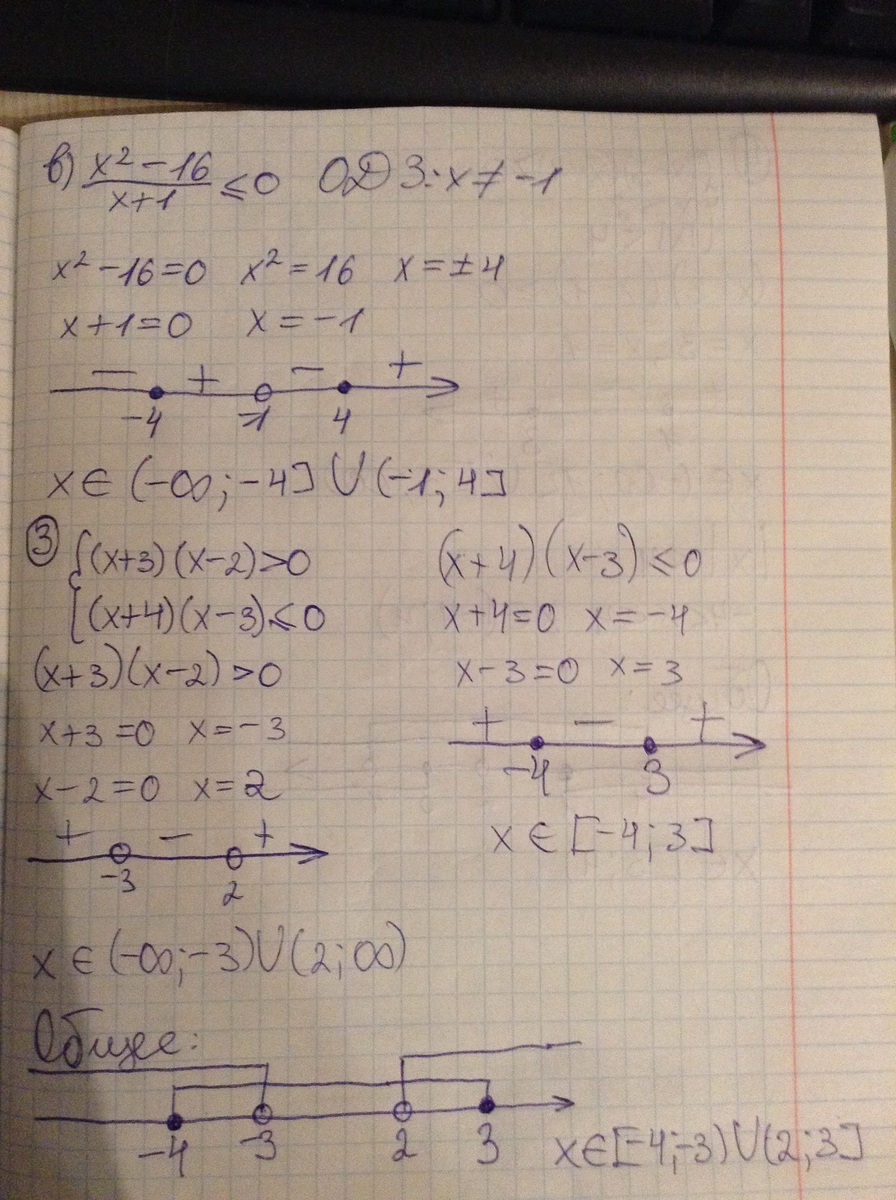 в) x² − 16 / x+1 ≤ 0 ОДЗ: x ≠ −1
x² − 16 = 0 x² = 16 x = ±4
x + 1 = 0 x = −1
− + − +
−4 −1 4
x ∈ (−∞; −4] ∪ (−1; 4]
③ { (x+3)(x−2) > 0
(x+4)(x−3) ≤ 0
(x+3)(x−2) > 0
x+3 = 0 x = −3
x−2 = 0 x = 2
+ − +
−3 2
x ∈ (−∞; −3) ∪ (2; ∞)
(x+4)(x−3) ≤ 0
x+4 = 0 x = −4
x−3 = 0 x = 3
+ − +
−4 3
x ∈ [−4; 3]
Общее:
−4 −3 2 3
x ∈ [−4; −3) ∪ (2; 3]